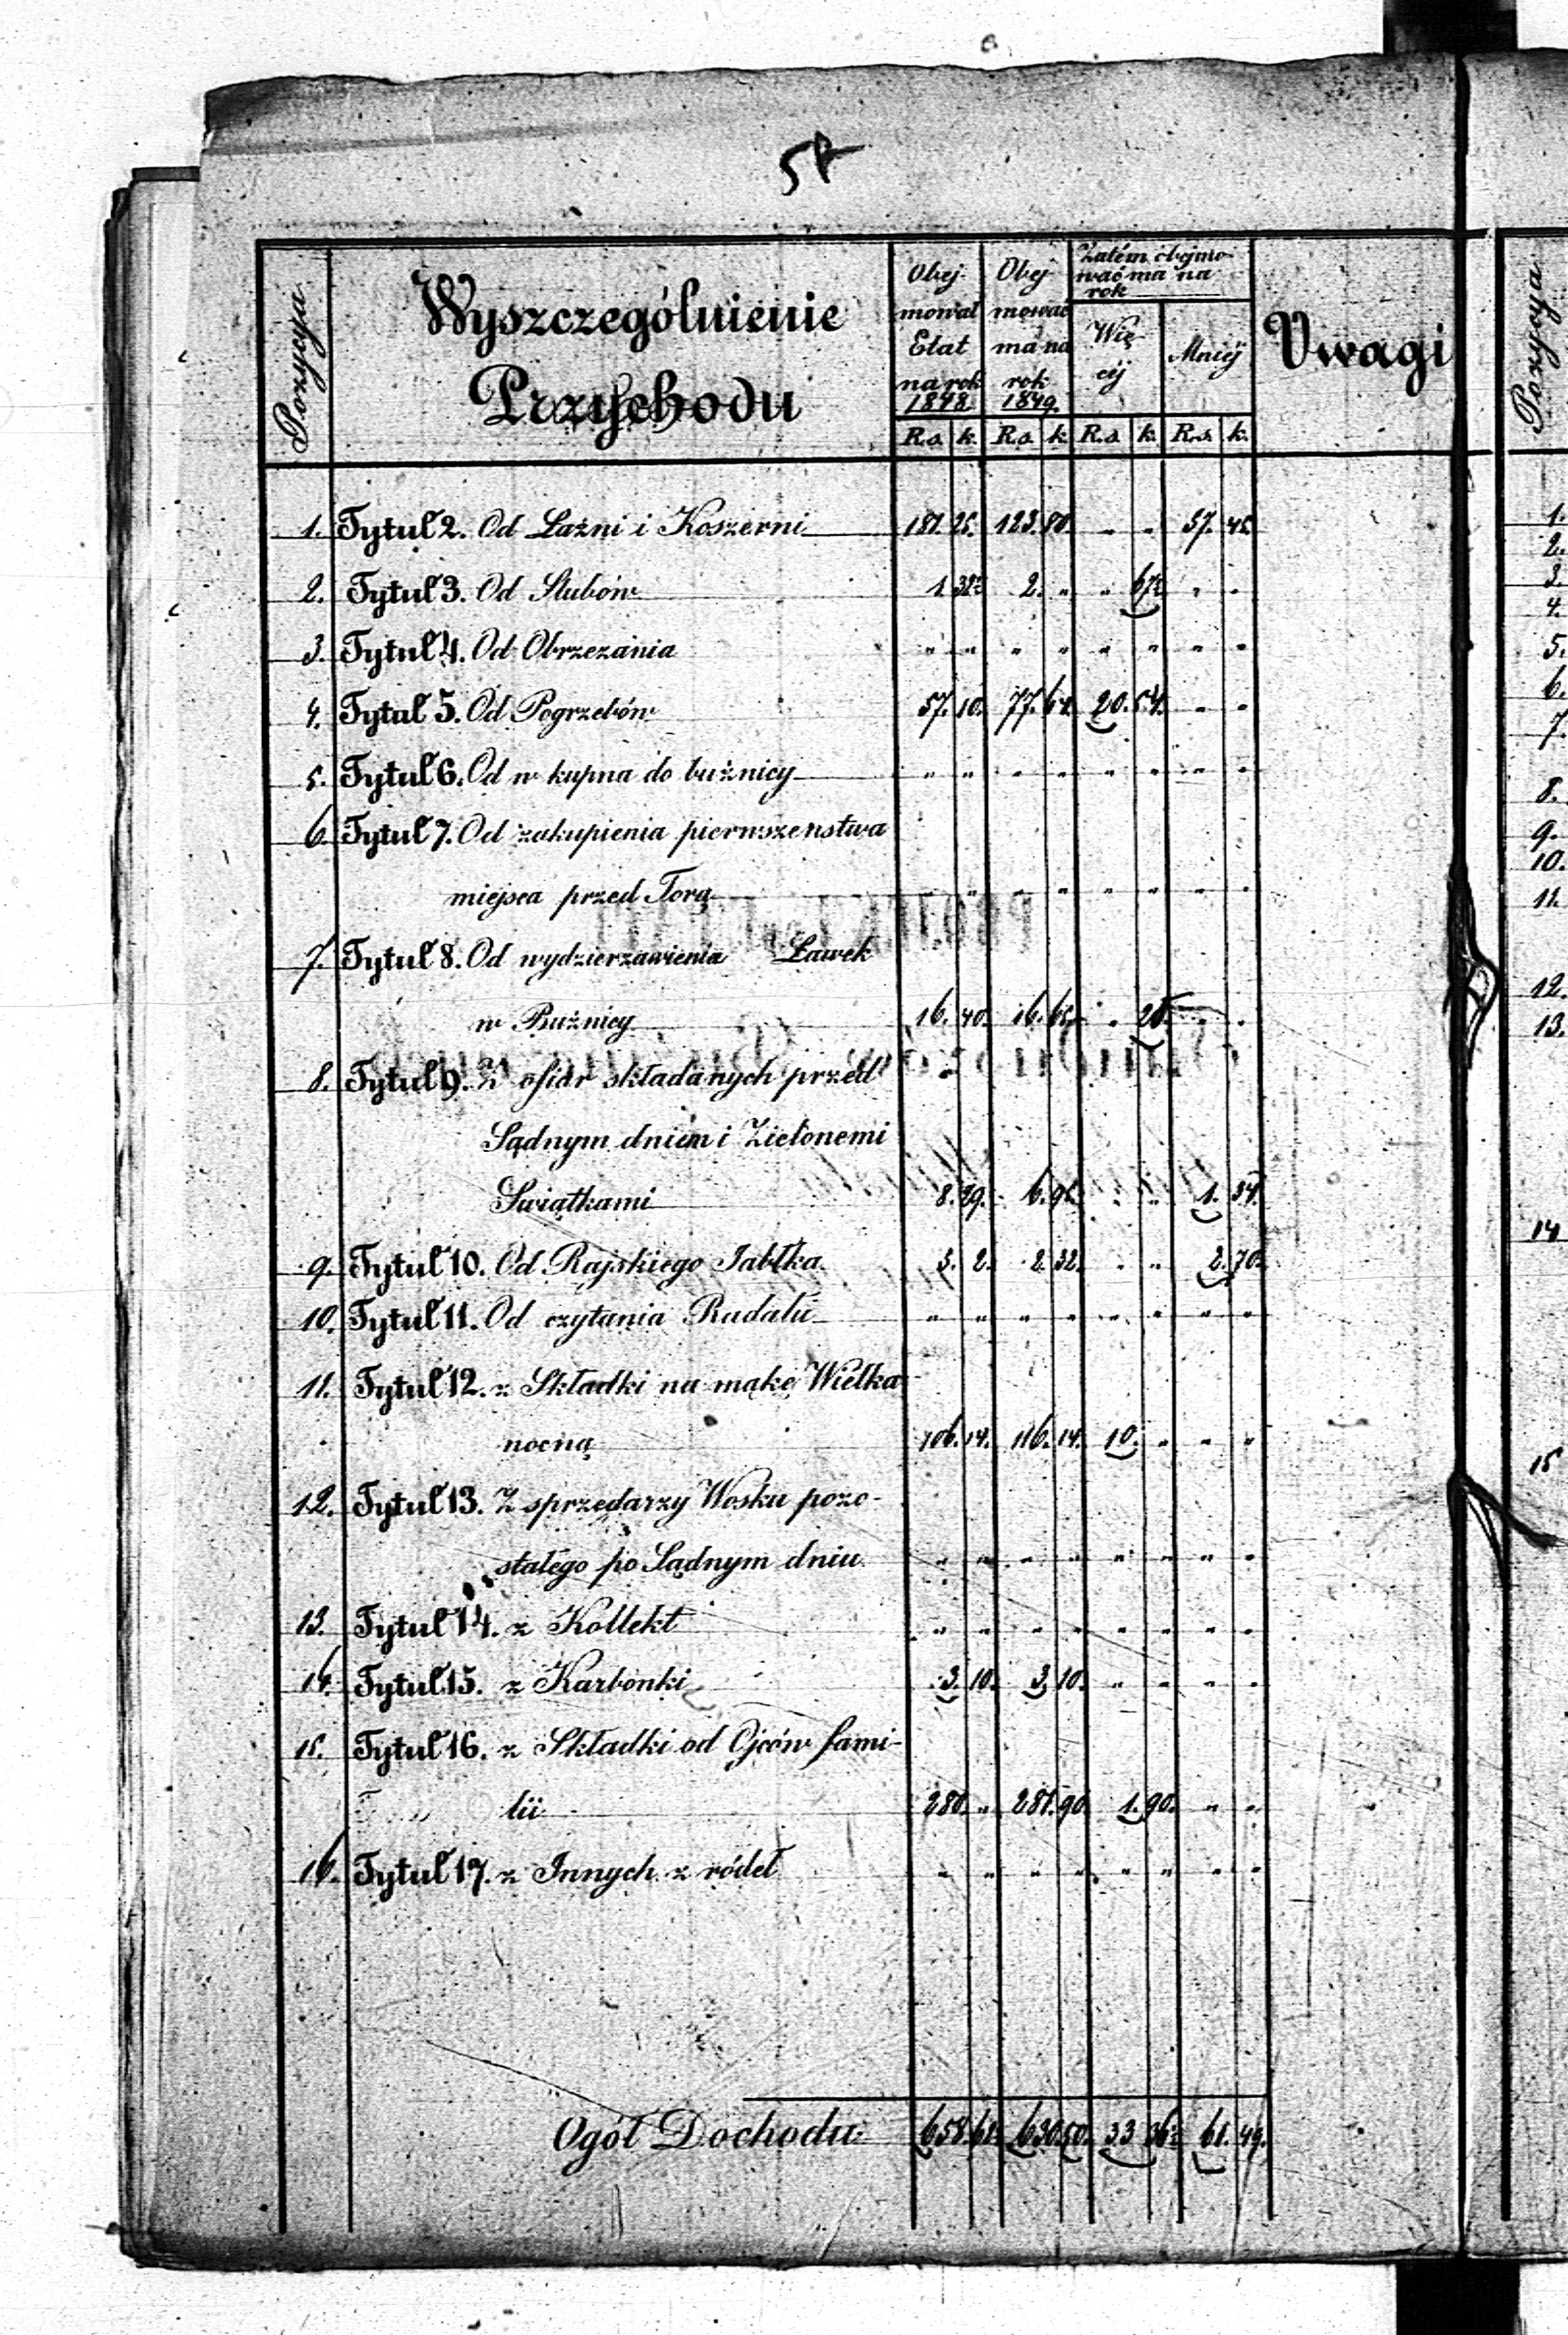 57
Pozycya
Wyszczególnienie
Przychodu
Obej-
mował
Etat
na rok
1848.
Obej
mować
ma na
rok
1849.
Zatém obejmo-
wać ma na
rok
Wię-
céj
Mniéj
Uwagi
R.s. k. R.s. k. R.s. k. R.s. k.
1. Tytuł 2. Od Łaźni i Koszerni 181. 25. 123. 80. " " 57. 45.
2. Tytuł 3. Od Slubów 1. 32½ 2. " " 67½ " "
3. Tytuł 4. Od Obrzezania " " " " " " " "
4. Tytuł 5. Od Pogrzebów 57. 10. 77. 64. 20. 54. " "
5. Tytuł 6. Od w kupna do bużnicy " " " " " " " "
6. Tytuł 7. Od zakupienia pierwszenstwa
miejsca przed Torą " " " " " " " "
7. Tytuł 8. Od wydzierzawienia Ławek
w Bużnicy 16. 40. 16. 65. " 25. " "
8. Tytuł 9. Z ofiar składanych przed
Sądnym dniem i Zielonemi
Swiątkami 8. 29. 6. 95. " " 1. 34.
9. Tytuł 10. Od Rajskiego Jabłka 5. 2. 2. 32. " " 2. 70.
10. Tytuł 11. Od czytania Rudału " " " " " " " "
11. Tytuł 12. z Składki na mąkę Wielka-
nocną 106. 14. 116. 14. 10. " " "
12. Tytuł 13. Z sprzedarzy Wosku pozo-
stałego po Sądnym dniu " " " " " " " "
13. Tytuł 14. z Kollekt " " " " " " " "
14. Tytuł 15. z Karbonki 3. 10. 3. 10. " " " "
15. Tytuł 16. z Składki od Ojców fami-
lii 280. " 281. 90. 1. 90. " "
16. Tytuł 17. z Innych z ródeł " " " " " " " "
Ogół Dochodu 658. 630. 50. 33 36½ 61. 49.
Pozycya
1.
2.
3.
4.
5.
6.
7.
8.
9.
10.
11.
12.
13.
14
15